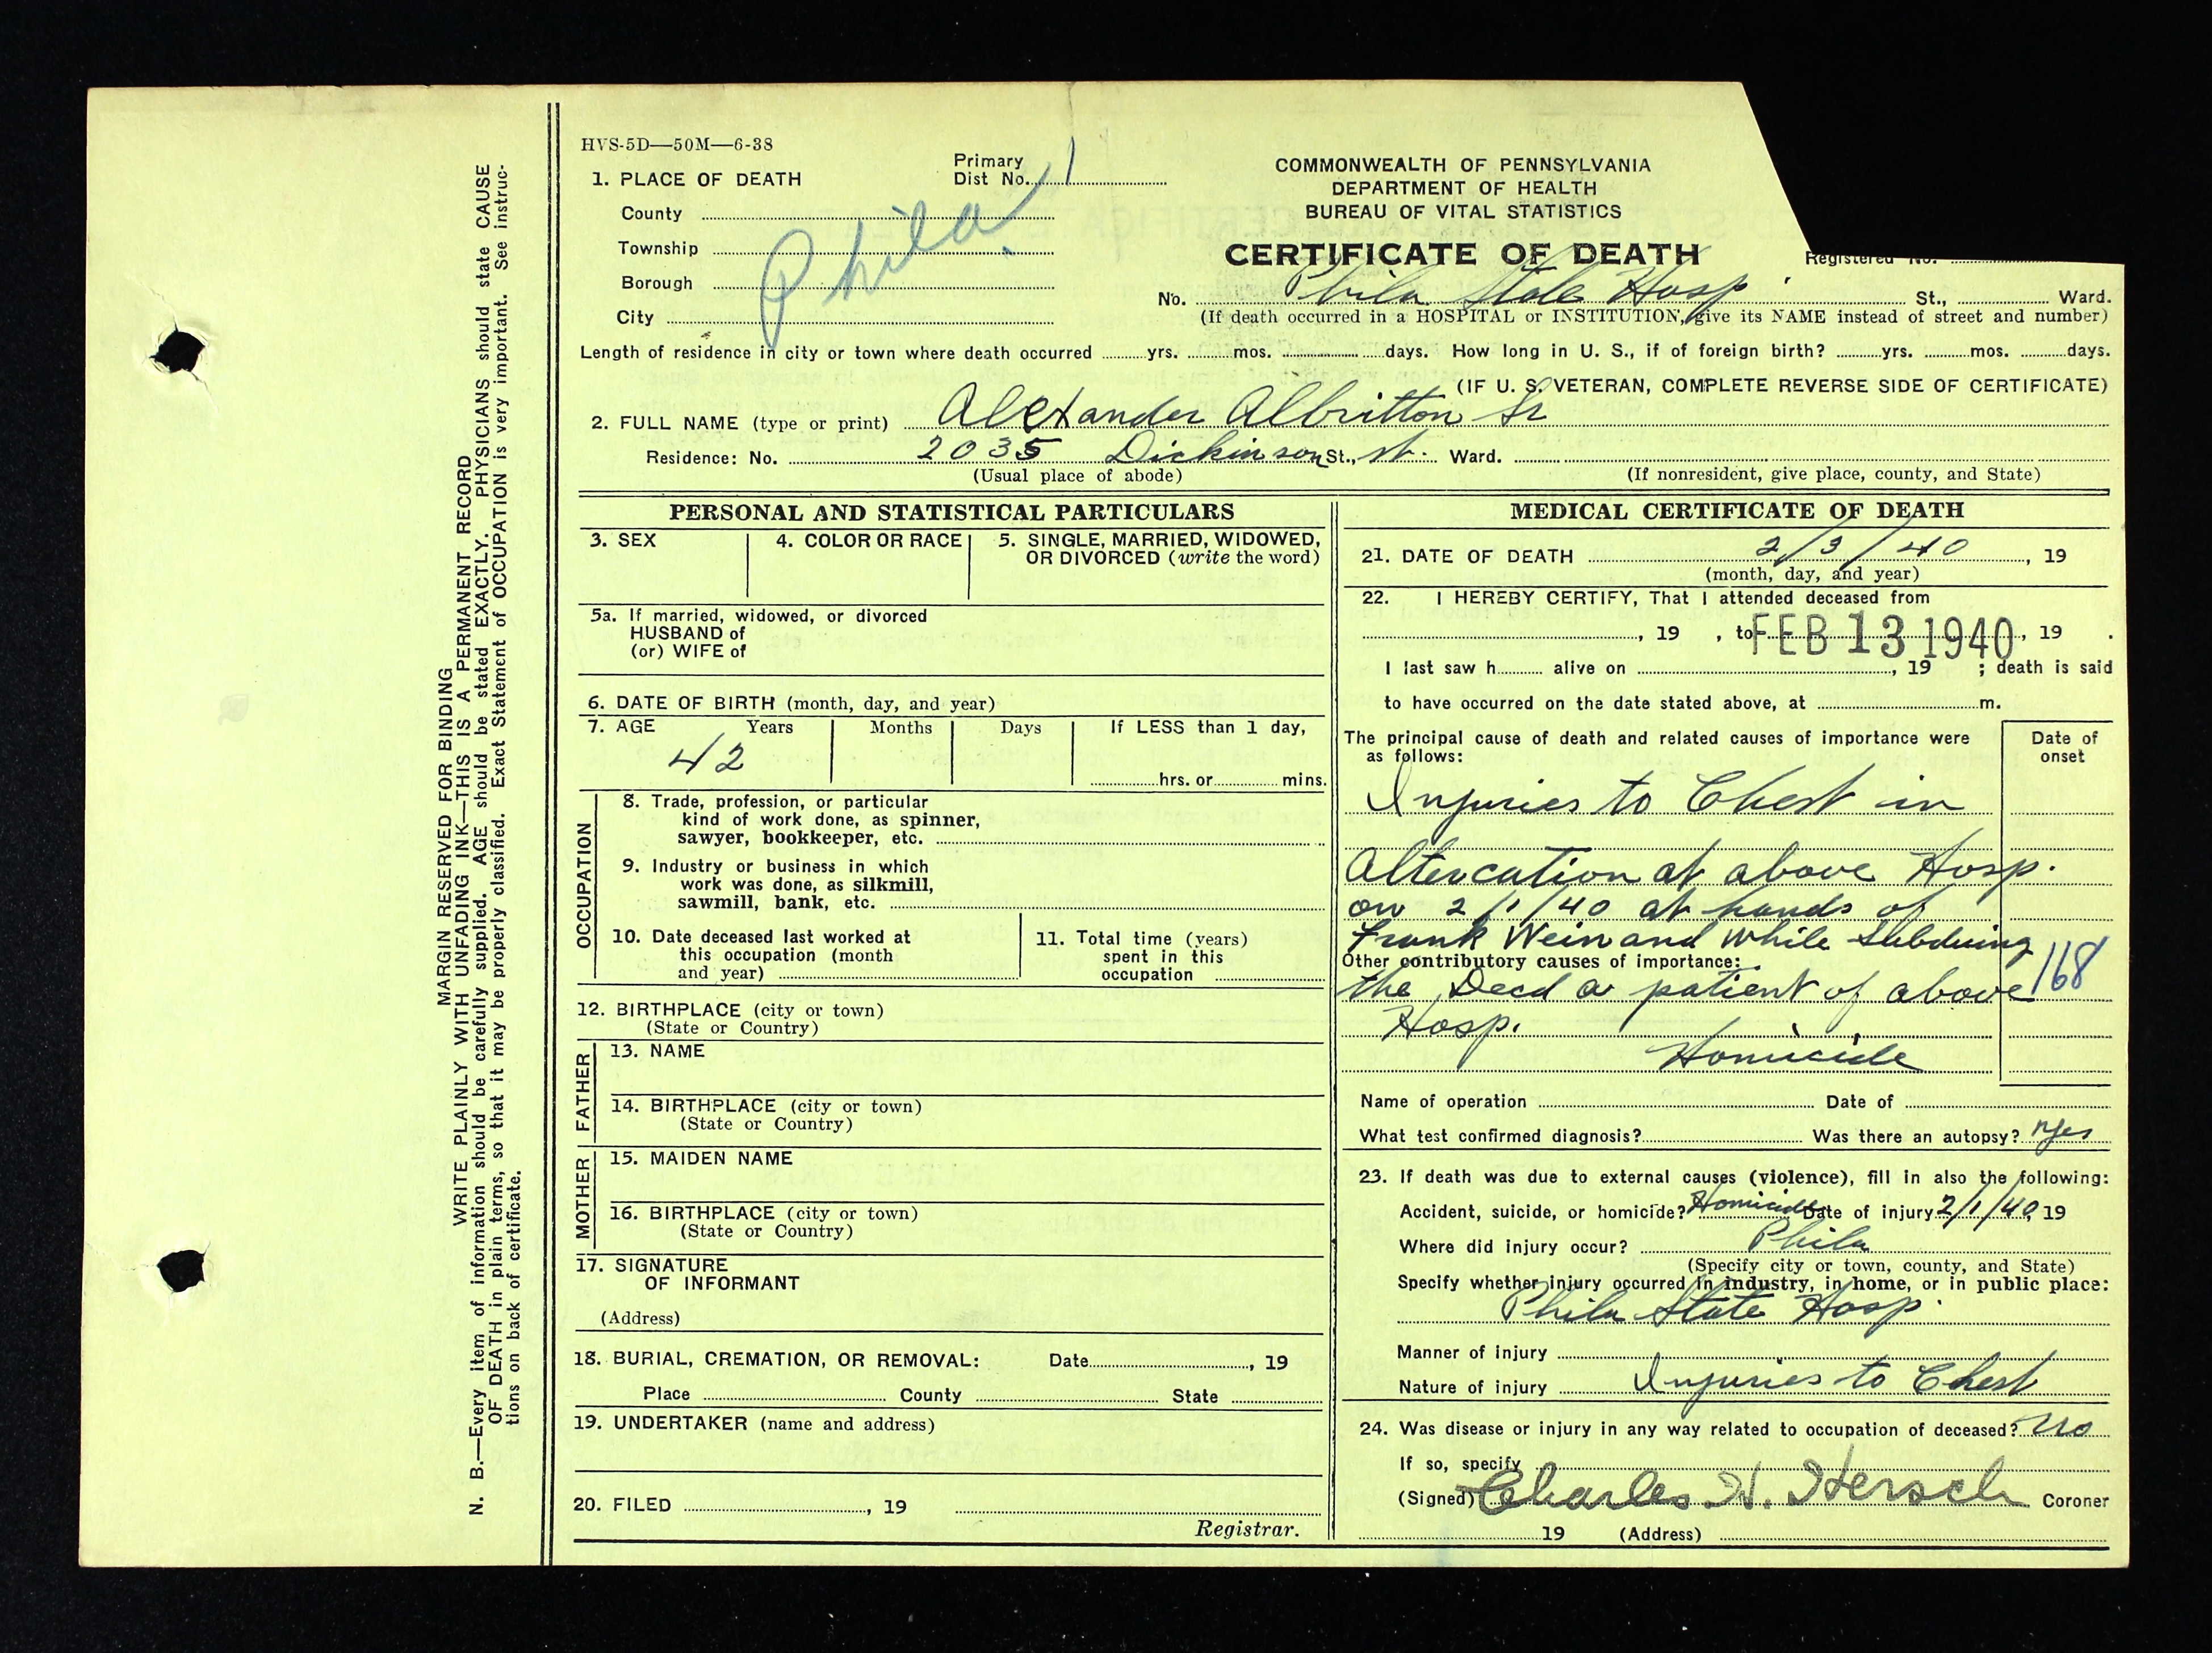 HVS-5D—50M—6-38
1. PLACE OF DEATH
Primary
Dist No. 1
County
Township
Borough
City
Phila.
COMMONWEALTH OF PENNSYLVANIA
DEPARTMENT OF HEALTH
BUREAU OF VITAL STATISTICS
CERTIFICATE OF DEATH
Registered No.
No. Phila State Hosp. St., Ward.
(If death occurred in a HOSPITAL or INSTITUTION, give its NAME instead of street and number)
Length of residence in city or town where death occurred yrs. mos. days. How long in U. S., if of foreign birth? yrs. mos. days.
(IF U. S. VETERAN, COMPLETE REVERSE SIDE OF CERTIFICATE)
2. FULL NAME (type or print) Alexander Albritton Sr
Residence: No. 2035 Dickinson St., St. Ward.
(Usual place of abode) (If nonresident, give place, county, and State)
PERSONAL AND STATISTICAL PARTICULARS
3. SEX
4. COLOR OR RACE
5. SINGLE, MARRIED, WIDOWED,
OR DIVORCED (write the word)
5a. If married, widowed, or divorced
HUSBAND of
(or) WIFE of
6. DATE OF BIRTH (month, day, and year)
7. AGE Years Months Days If LESS than 1 day,
42
hrs. or mins.
OCCUPATION
8. Trade, profession, or particular
kind of work done, as spinner,
sawyer, bookkeeper, etc.
9. Industry or business in which
work was done, as silkmill,
sawmill, bank, etc.
10. Date deceased last worked at
this occupation (month
and year)
11. Total time (years)
spent in this
occupation
12. BIRTHPLACE (city or town)
(State or Country)
FATHER
13. NAME
14. BIRTHPLACE (city or town)
(State or Country)
MOTHER
15. MAIDEN NAME
16. BIRTHPLACE (city or town)
(State or Country)
17. SIGNATURE
OF INFORMANT
(Address)
18. BURIAL, CREMATION, OR REMOVAL: Date , 19
Place County State
19. UNDERTAKER (name and address)
20. FILED , 19
Registrar.
MEDICAL CERTIFICATE OF DEATH
21. DATE OF DEATH 2/3/40 , 19
(month, day, and year)
22. I HEREBY CERTIFY, That I attended deceased from
, 19 , to FEB 13 1940, 19 .
I last saw h alive on , 19 ; death is said
to have occurred on the date stated above, at m.
The principal cause of death and related causes of importance were
as follows:
Date of
onset
Injuries to Chest in
Altercation at above Hosp.
on 2/1/40 at hands of
Frank Weinand while subduing
Other contributory causes of importance:
168
the Decd a patient of above
Hosp.
Homicide
Name of operation Date of
What test confirmed diagnosis? Was there an autopsy? yes
23. If death was due to external causes (violence), fill in also the following:
Accident, suicide, or homicide? Homicide Date of injury 2/1/40, 19
Where did injury occur? Phila
(Specify city or town, county, and State)
Specify whether injury occurred in industry, in home, or in public place:
Phila State Hosp.
Manner of injury
Nature of injury Injuries to Chest
24. Was disease or injury in any way related to occupation of deceased? no
If so, specify
(Signed) Charles H. Hersch Coroner
19 (Address)
MARGIN RESERVED FOR BINDING
WRITE PLAINLY WITH UNFADING INK—THIS IS A PERMANENT RECORD
N. B.—Every item of information should be carefully supplied. AGE should be stated EXACTLY. PHYSICIANS should state CAUSE
OF DEATH in plain terms, so that it may be properly classified. Exact Statement of OCCUPATION is very important. See instruc-
tions on back of certificate.